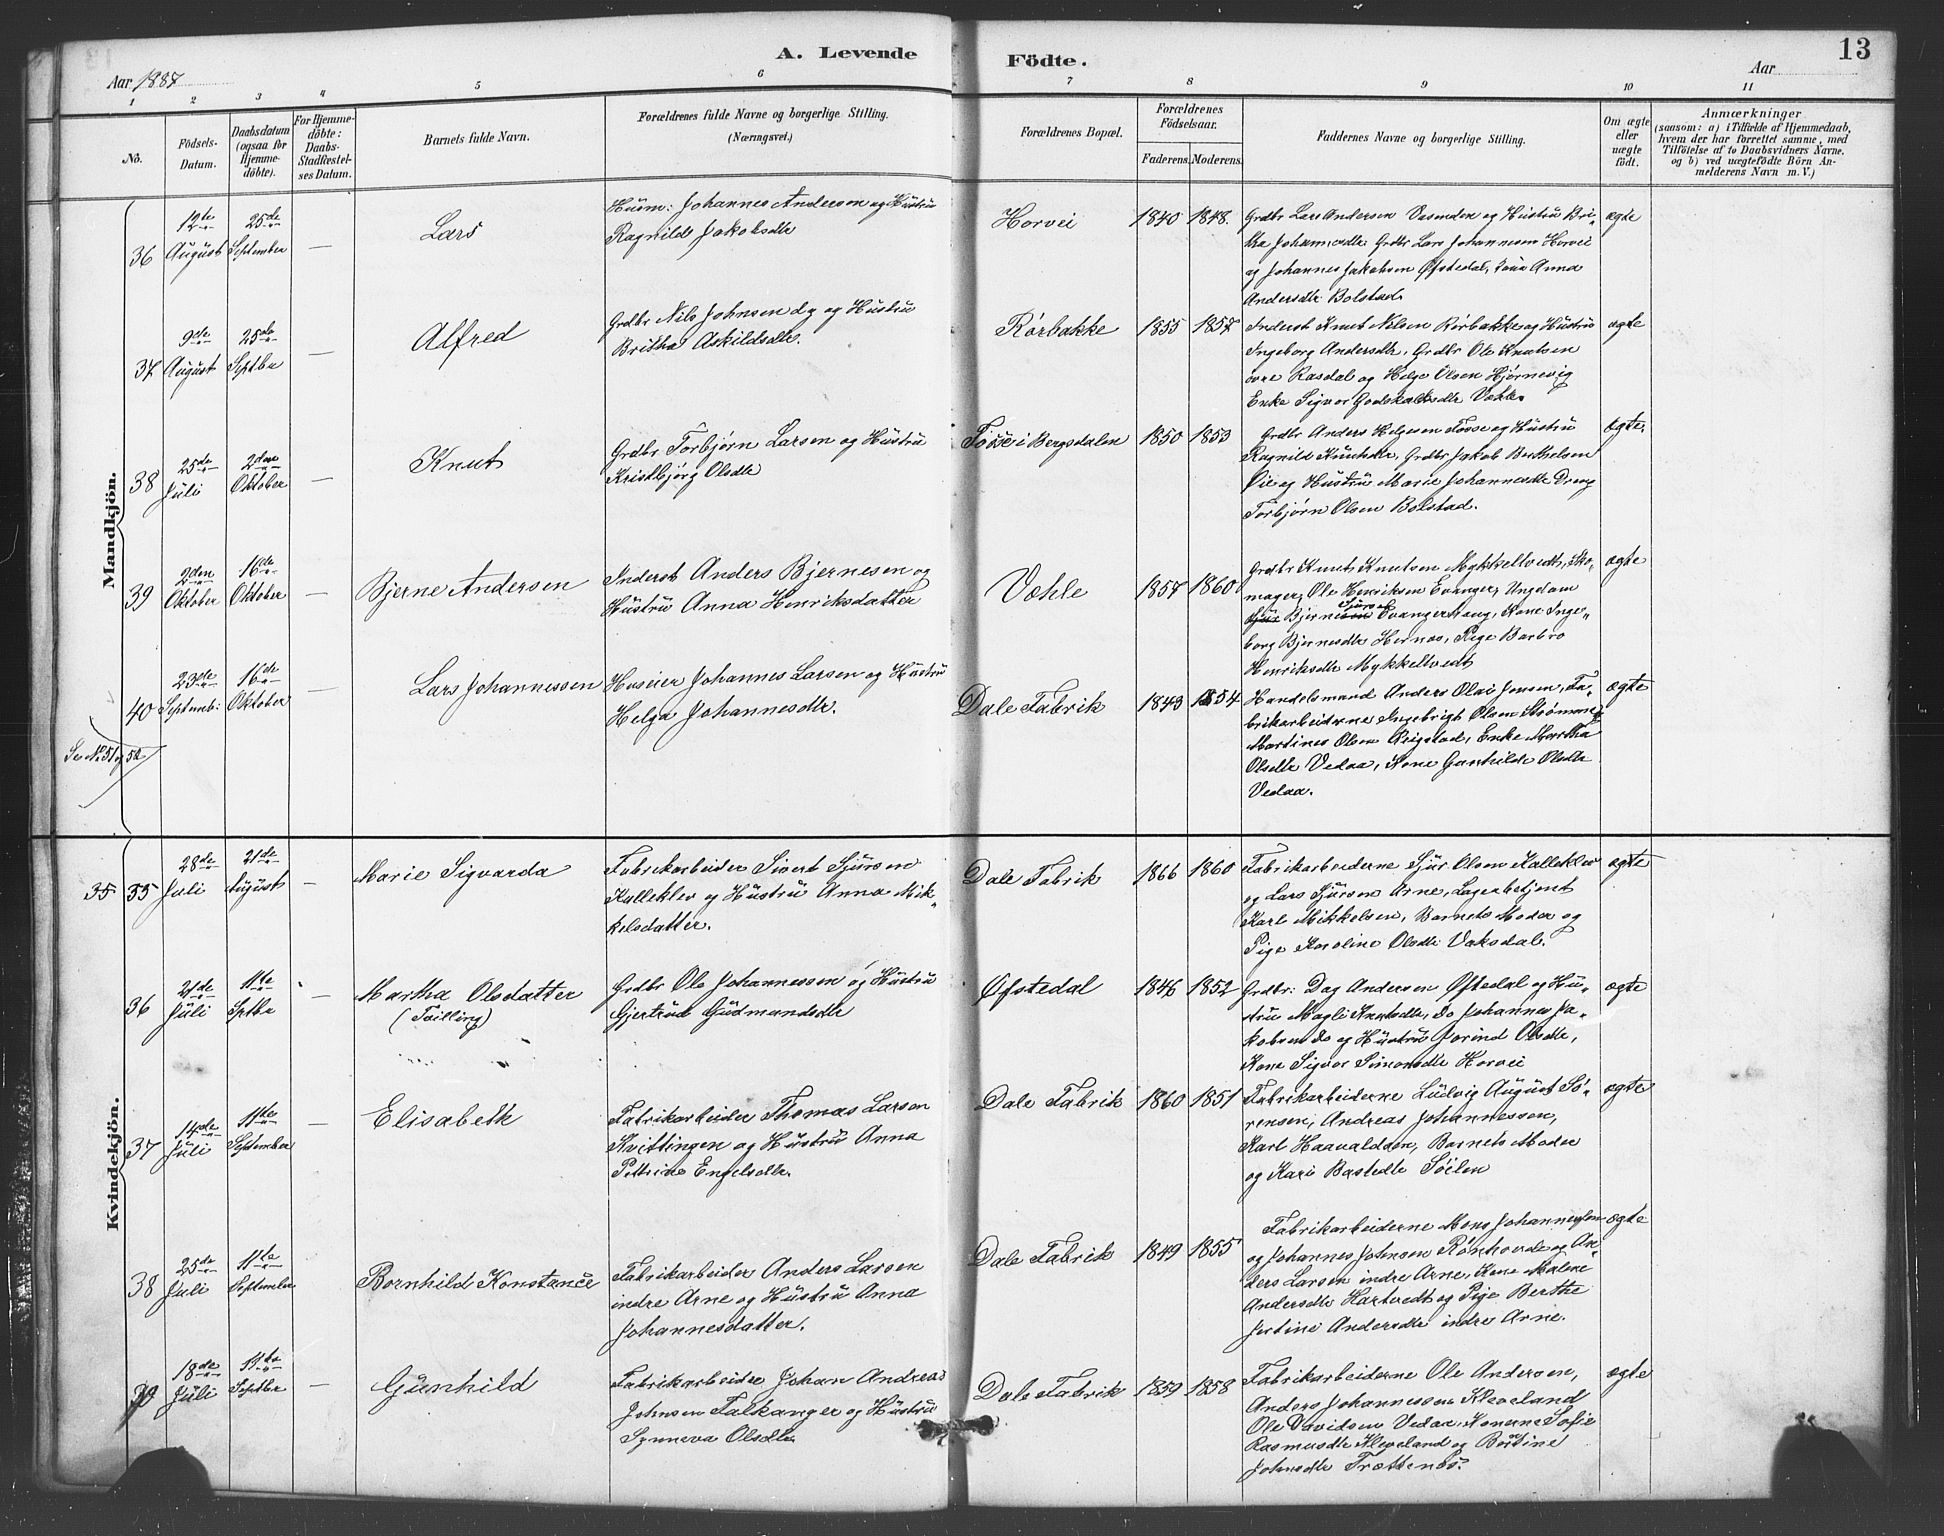 A. Levende Födte.
13
Aar 1887
Aar
1 2 3 4 5 6 7 8 9 10 11
No.
Födsels-Datum.
Daabsdatum (ogsaa for Hjemme-döbte).
For Hjemme-döbte: Daabs-Stadfæstel-ses Datum.
Barnets fulde Navn.
Forældrenes fulde Navne og borgerlige Stilling.
(Næringsvei.)
Forældrenes Bopæl.
Forældrenes Födselsaar.
Faderens. Moderens.
Faddernes Navne og borgerlige Stilling.
Om ægte eller uægte födt.
Anmærkninger
(saasom: a) i Tilfælde af Hjemmedaab, hvem der har forrettet samme, med Tilföielse af to Daabsvidners Navne, og b) ved uægtefödte Börn Anmelderens Navn m. V.)
Mandkjön.
36
12te August
25de September
—
Lars
Husm: Johannes Andersen og Hustru
Ragnilde Jakobsdtr
Horvei
1840 1848.
Grdbr Lars Andersen Væsenden og Hustru Bri-
tha Johannesdtr. Grdbr Lars Johannesen Horvei
og Johannes Jakobsen Øfstedal, Anna
Andersdtr Bolstad
ægte
37
9de August
25de Septbr
—
Alfred
Grdbr Nils Johnsen og Hustru
Britha Askildsdtr.
Rörbakke
1855 1857
Inderst Knut Nilsen Rörbakke og Hustru
Ingeborg Andersdtr, Grdbr Ole Knutsen
övre Rasdal og Helge Olsen Hjørnevig
Enke Sigvor Godskalksdtr Væhle.
ægte
38
25de Juli
2den Oktober
—
Knut
Grdbr Torbjörn Larsen og Hustru
Kristbjörg Olsdtr
Fosse i Bergsdalen
1850 1853
Grdbr Anders Helgesen Fosse og Hustru
Ragnild Knutsdtr, Grdbr Jakob Berthelsen
og Hustru Marie Johannesdtr Dreng
Torbjörn Olsen Bolstad.
ægte.
39
2den Oktober
16de Oktober
—
Bjerne Andersen
Inderst Anders Bjernesen og
Hustru Anna Henriksdatter
Væhle
1857 1860
Grdbr Knut Knutsen Mykkeltvedt, Sko-
mager Ole Henriksen Evanger, Ungdom
Bjerne Sjursen Evangerhaug, Kone Inge-
borg Bjernesdtr Hernæs, Pige Barbro
Henriksdtr Mykkeltvedt
ægte
40
23de Septemb:
16de Oktober
—
Lars Johannessen
Huseier Johannes Larsen og Hustru
Helga Johannesdtr.
Dale Fabrik
1843 1854
Handelsmand Anders Olai Jensen, Fa-
brikarbeiderne Ingebrigt Olsen Strømme,
Martines Olsen Reigstad, Enke Martha
Olsdtr Vedaa, Kone Gunhilde Olsdtr
Vedaa.
ægte
Se No 51 og 52
Kvindekjön.
35
35
28de Juli
21de August
—
Marie Sigvarda
Fabrikarbeider Sivert Sjursen
Kalleklev og Hustru Anna Mik-
kelsdatter.
Dale Fabrik
1866 1860
Fabrikarbeiderne Sjur Olsen Kalleklev
og Lars Sjursen Arne, Lagerbetjent
Karl Mikkelsen, Barnets Moder og
Pige Karoline Olsdtr Vaksdal.
ægte
36
21de Juli
11te Septbr
—
Martha Olsdatter
(Tvilling)
Grdbr Ole Johannessen og Hustru
Gjertrud Gudmundsdtr
Øfstedal
1846 1852
Grdbr: Dag Andersen Øfstedal og Hu-
stru Magli Knutsdtr, Do Johannes Ja-
kobsen do og Hustru Jorind Olsdtr,
Kone Sigvor Simonsdtr Horvei
ægte
37
14de Juli
11te September
—
Elisabeth
Fabrikarbeider Thomas Larsen
Kvittingen og Hustru Anna
Petrine Engelsdtr.
Dale Fabrik
1860 1851
Fabrikarbeiderne Ludvig August Sö-
rensen, Andreas Johannessen,
Karl Haavaldsen, Barnets Moder
og Kari Søilen
ægte
38
25de Juli
11te September
—
Bornhild Konstance
Fabrikarbeider Anders Larsen
indre Arne og Hustru Anna
Johannesdatter.
Dale Fabrik
1849 1855
Fabrikarbeiderne Mons Johannessen
og Johannes Johnsen Rönhovde og An-
ders Larsen indre Arne, Kone Malene
Andersdtr Hartvedt og Pige Berthe
Jertine Andersdtr indre Arne.
ægte
39
18de Juli
11te Septbr
—
Gunhild
Fabrikarbeider Johan Andreas
Johnsen Falkanger og Hustru
Synneva Olsdtr
Dale Fabrik
1859 1858
Fabrikarbeiderne Ole Andersen,
Anders Johannessen Kleveland
Ole Davidsen Vedaa, Konerne Sofie
Rasmusdtr Kleveland og Bertine
Johnsdtr Trættenes.
ægte